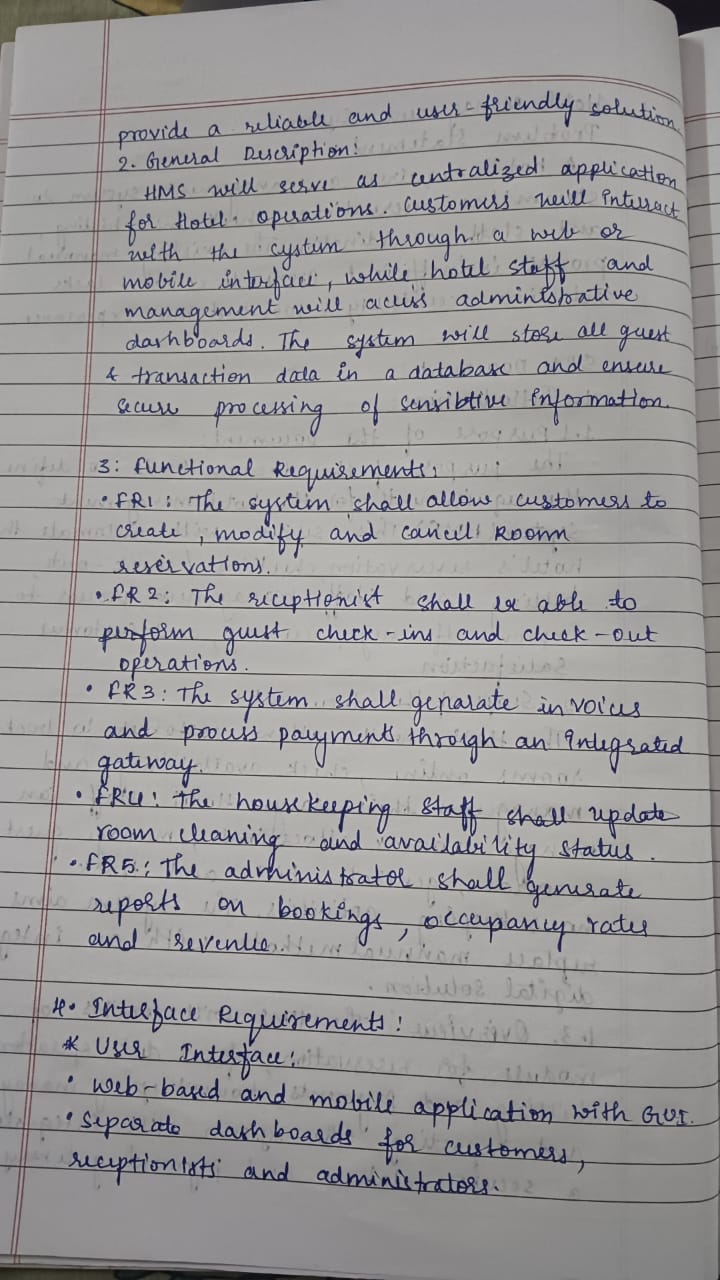 provide a reliable and user-friendly solution.
2. General Description:
HMS will serve as centralized application
for Hotel operations. Customers will interract
with the cystem through a web or
mobile interface, while hotel staff and
management will access administrative
dashboards. The system will store all guest
& transaction data in a database and ensure
secure processing of sensibtive information.
3: Functional Requirements:
• FR1: The system shall allow customers to
create, modify and cancel Room
reservations.
• FR2: The receptionist shall be able to
perform guest check-ins and check-out
operations.
• FR3: The system shall genarate invoices
and process payments through an integrated
gateway.
• FR4: The housekeeping staff shall update
room cleaning and availability status.
• FR5: The administrator shall generate
reports on bookings, occupancy rates
and revenue.
4. Interface Requirements:
* User Interface:
• web-based and mobile application with GUI.
• Separate dashboards for customers,
receptionists and administrators.